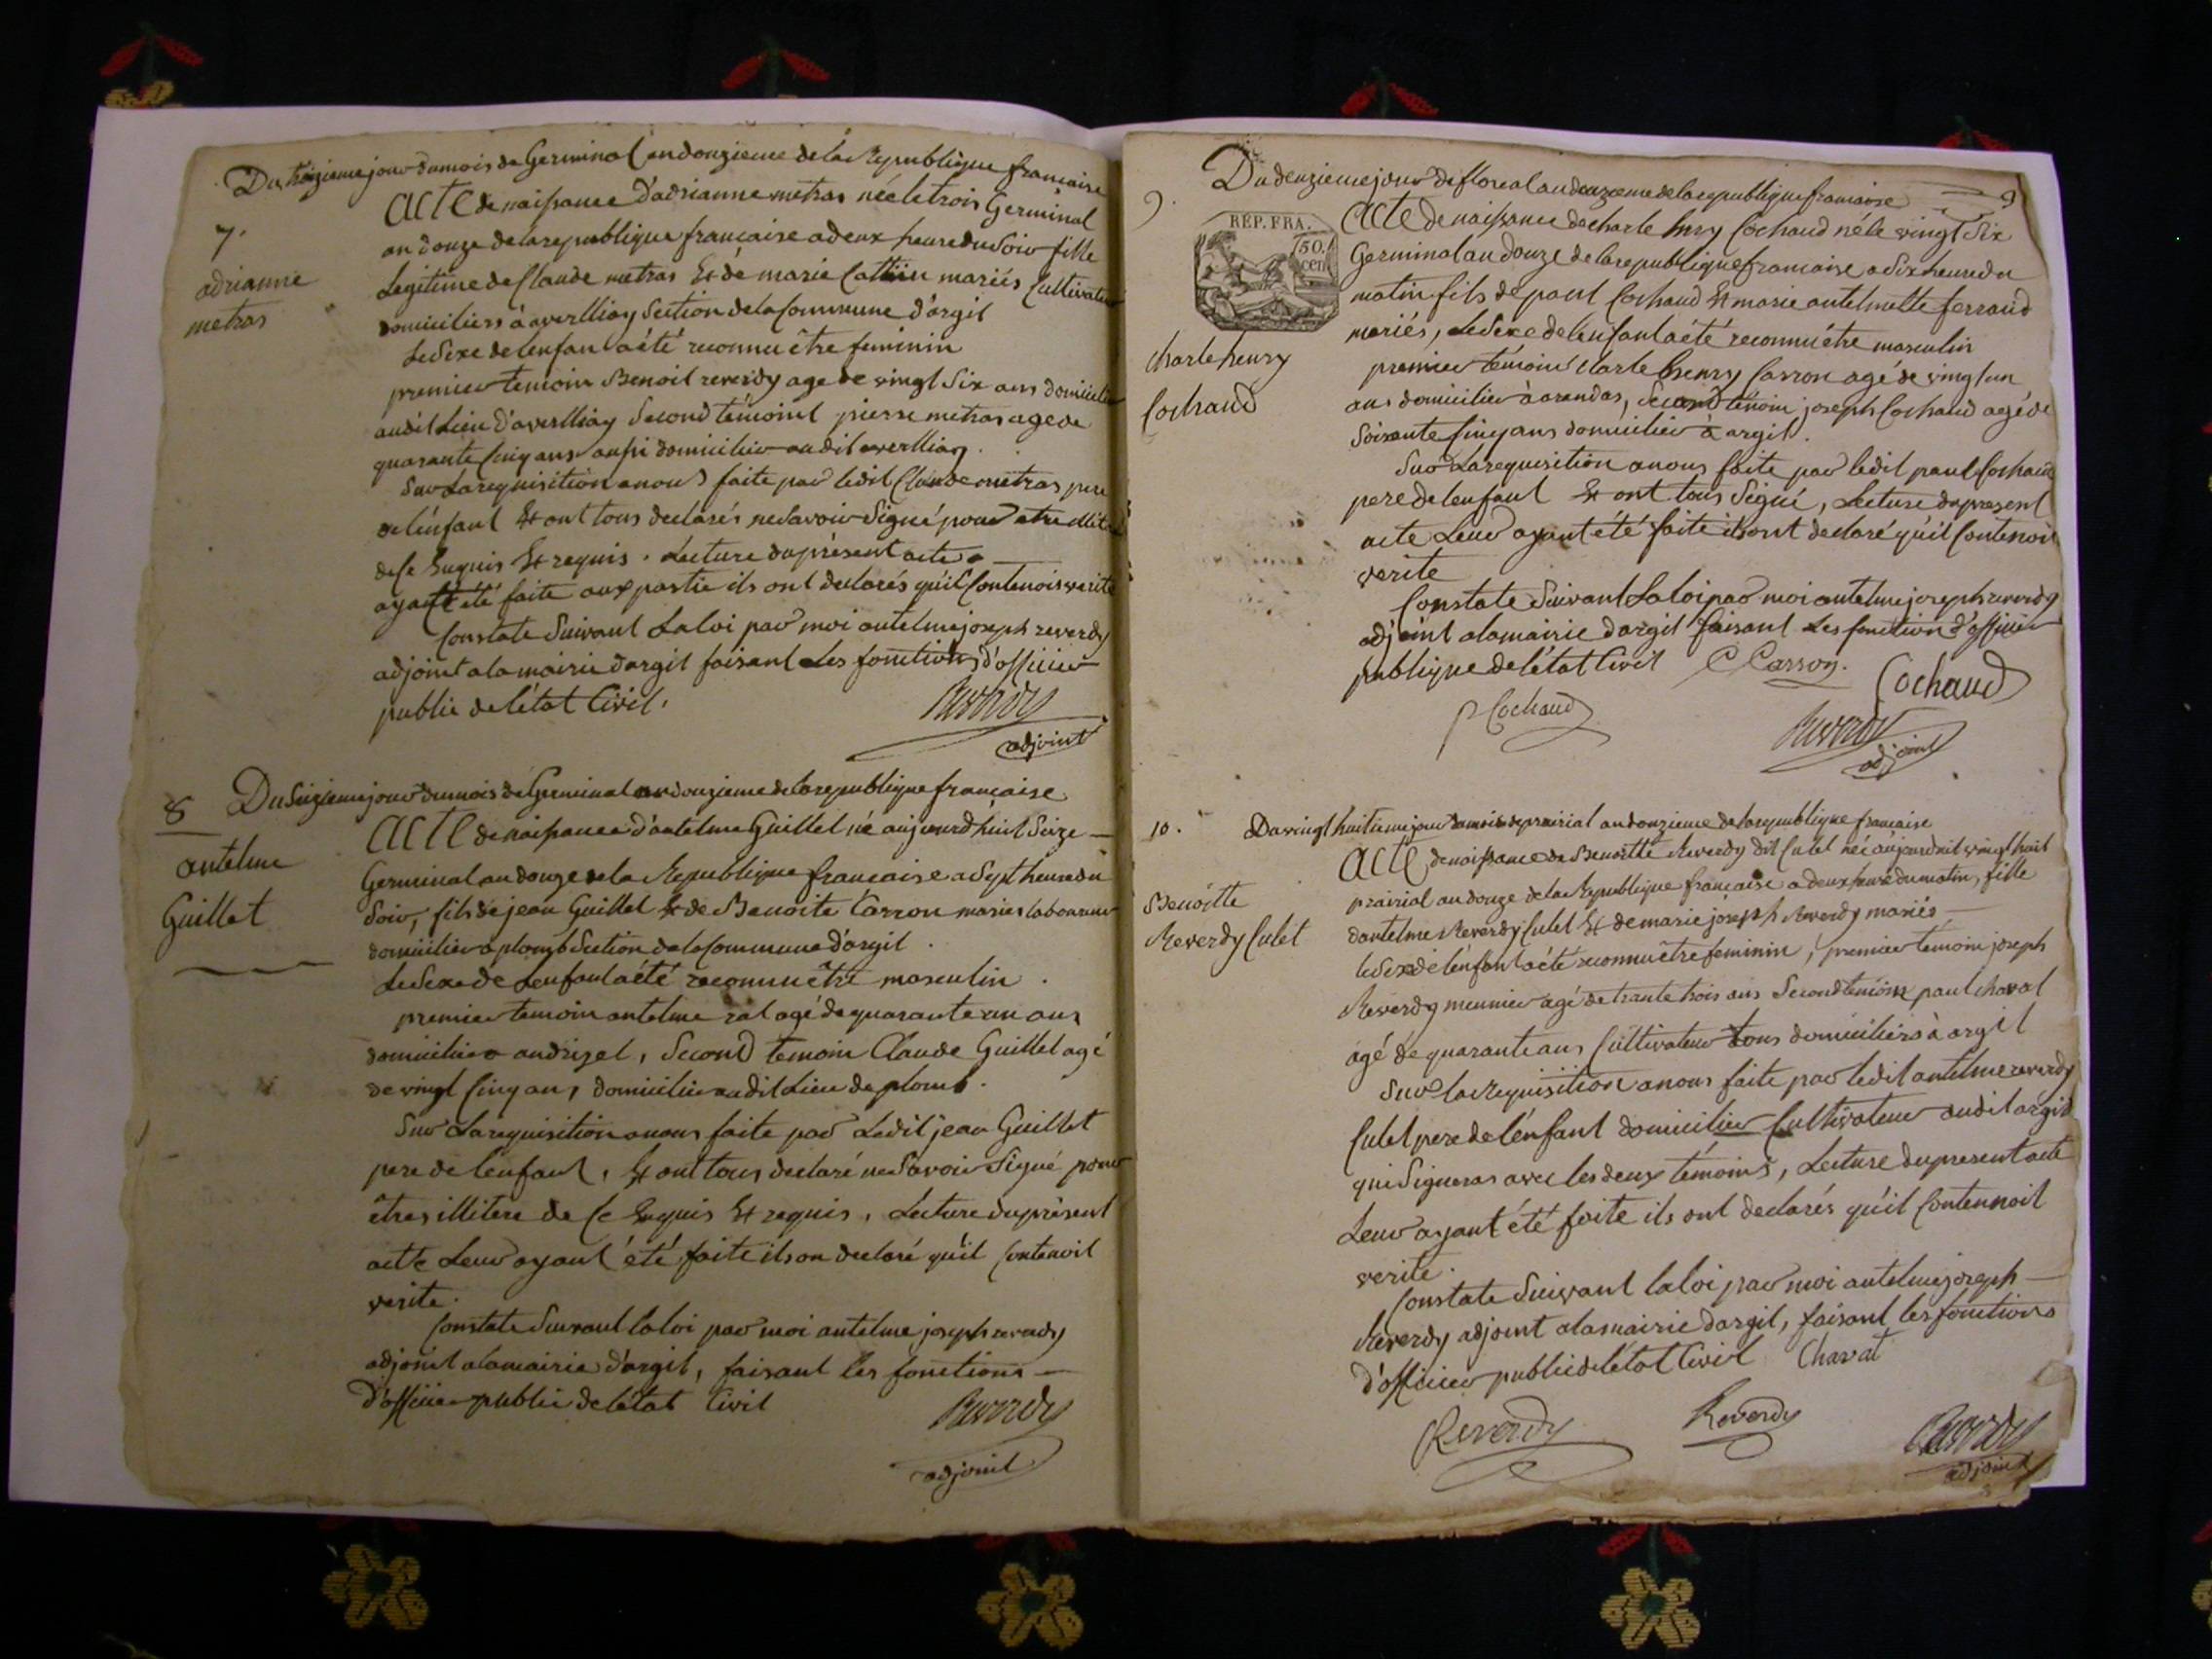 Du treizieme jour du mois de Germinal an douzieme de la Republique française
7.
adrianne
metras
Acte de naissance d'adrianne metras née le trois Germinal
an douze de la republique française a deux heure du Soir fille
Legitime de Claude metras Et de marie Cattin mariés Cultivateur
domiciliers à averlliay Section de la Commune d'argil
Le Sexe de lenfan a été reconnu être feminin
premier temoin Benoit reverdy age de vingt Six ans domicilier
au dit Lieu d'averlliay Second témoint pierre metras age de
quarante Cinq ans aussi domicilier au dit averlliay.
Sur La requisition a nous faite par ledit Claude metras pere
de lénfant Et ont tous declarés ne Savoir Signé pour etre illit
de Ce Enquis Et requis. Lecture du présent acte
ayant été faite aux partie ils ont declarés qu'il Contenois verité
Constate Suivant La loi par moi antelme joseph reverdy
adjoint a la mairie d'argil faisant Les fonctions d'officier
public de l'état Civil.
Reverdy
adjoint
8
antelme
Guillet
Du Seizieme jour du mois de Germinal an douzieme de la republique française
Acte de naissance d'antelme Guillet né aujourd'huit Seize
Germinal an douze de la Republique francaise a Sept heure du
Soir, fils de jean Guillet Et de Benoite Carron mariés laboureur
domicilier a plomb Section de la Commune d'argil.
Le Sexe de Lenfant a été reconnu être masculin.
premier temoin antelme ral agé de quarante un ans
domicilier andrizel, Second temoin Claude Guillet agé
de vingt Cinq ans, domicilier au dit Lieu de plomb.
Sur La requisition a nous faite par Ledit jean Guillet
pere de lenfant, Et ont tous declaré ne Savoir Signé pour
êtres illitere de Ce Enquis Et requis, Lecture du présent
acte Leur ayant été faite ils on declaré qu'il Contenoit
verite.
Constate Suivant la loi par moi antelme joseph reverdy
adjoint a la mairie d'argil, faisant les fonctions
d'officier public de létat Civil
Reverdy
adjoint
Du deuzieme jour de floreal an douzieme de la republique francaise
9
9.
RÉP. FRA.
50.
cen
Charle henry
Cochaud
Acte de naissance de charle henry Cochaud né le vingt Six
Germinal an douze de la republique francaise a Six heure du
matin fils de paul Cochaud Et marie antelmette ferrand
mariés, Le Sexe de lenfant a été reconnu être masculin
premier témoin Charle henry Carron agé de vingt un
ans domicilier à arandas, Second témoin joseph Cochaud agé de
Soixante Cinq ans domicilier à argil.
Sur La requisition a nous faite par ledit paul Cochaud
pere de lenfant Et ont tous Signé, Lecture du present
acte Leur ayant été faite ils ont declaré qu'il Contenoit
verite
Constate Suivant La loi par moi antelme joseph reverdy
adjoint a la mairie d'argil faisant Les fonction d'officier
publique de l'état Civil C Carron. Cochaud
P Cochaud
Reverdy
adjoint
10.
Benoitte
Reverdy Culet
Du vingt huitieme jour du mois de prairial an douzieme de la republique francaise
Acte de naissance de Benoitte Reverdy dit Culet née aujourdhuit vingt huit
prairial an douze de la Republique française a deux heure du matin, fille
dantelme Reverdy Culet Et de marie joseph Reverdy mariés
le Sexe de lénfant a été reconnu être feminin, premier temoin joseph
Reverdy meunier agé de trante trois ans Second temoin paul chavat
agé de quarante ans Cultivateur tous domiciliers à argil
Sur la Requisition a nous faite par ledit antelme reverdy
Culet pere de lénfant domicilier Cultivateur audit argil
qui Signeras avec les deux témoins, Lecture du present acte
Leur ayant été faite ils ont declarés qu'il Contennoit
verite.
Constate Suivant la loi par moi antelme joseph
Reverdy adjoint a la mairie d'argil, faisant les fonctions
d'officier public de létat Civil Chavat
Reverdy Reverdy Reverdy
adjoint